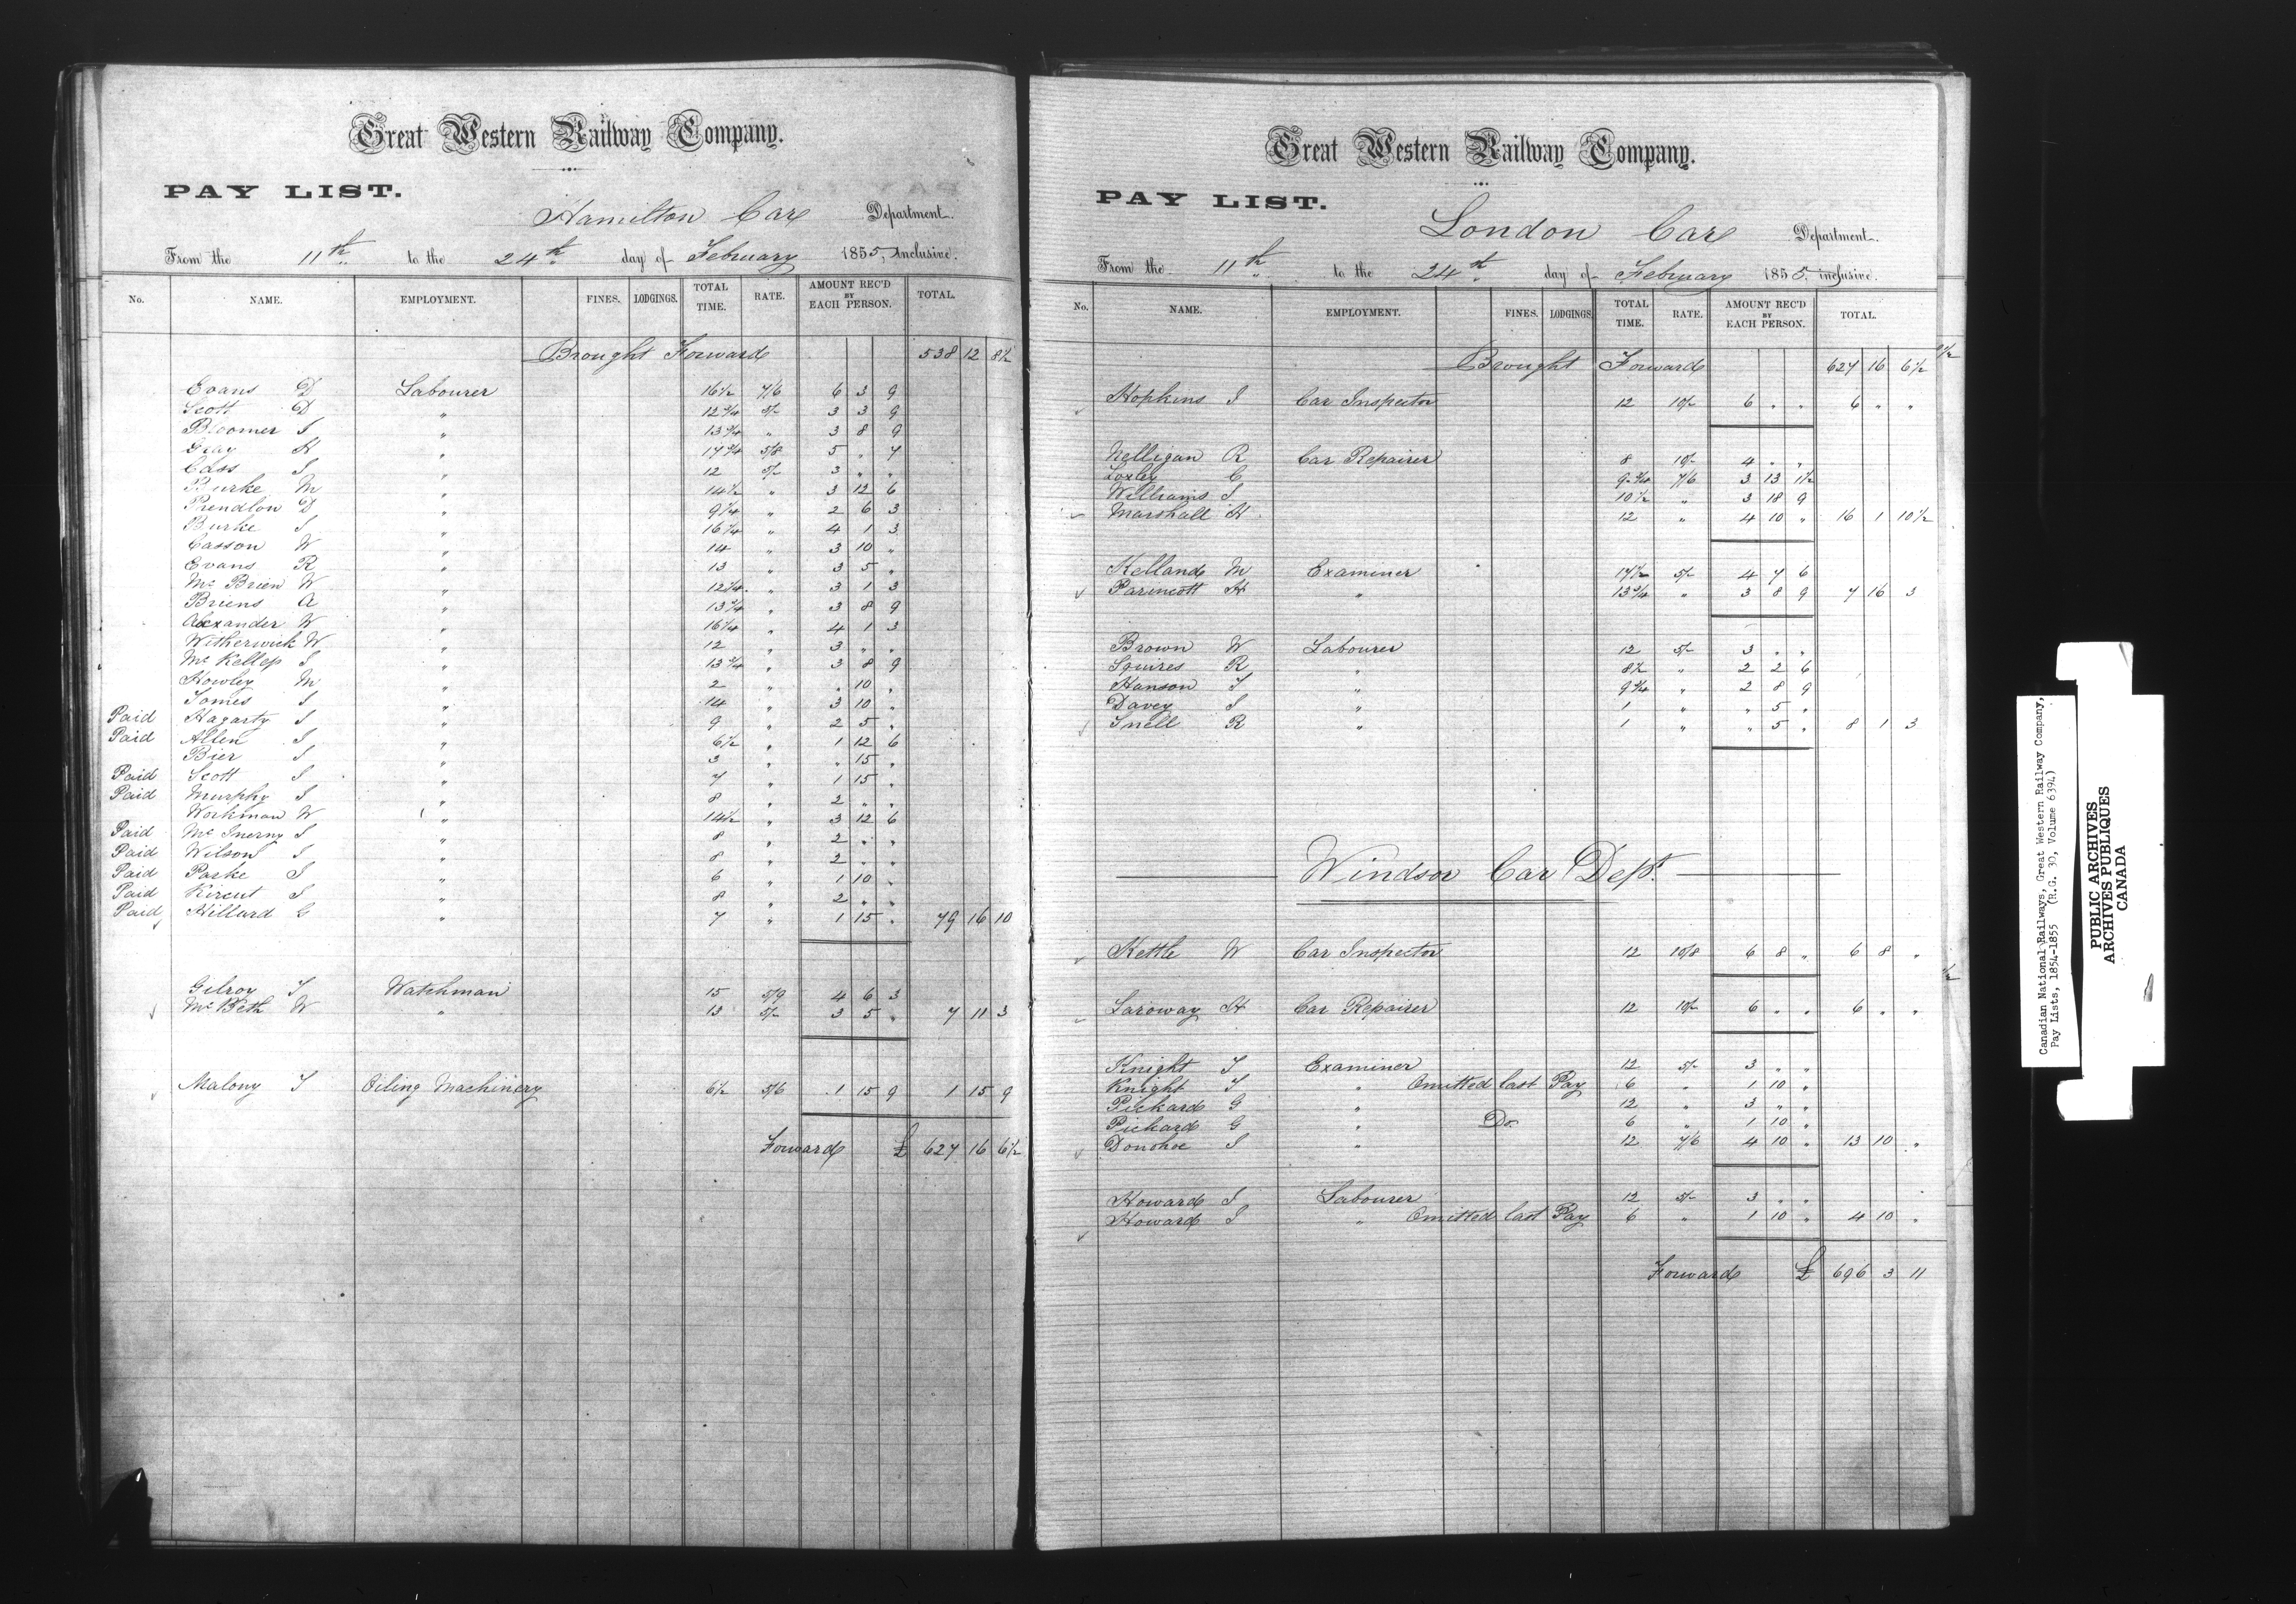 Great Western Railway Company.
PAY LIST.
Hamilton Car Department.
From the 11th to the 24th day of February 1855, Inclusive.
No. NAME. EMPLOYMENT. FINES. LODGINGS. TOTAL TIME. RATE. AMOUNT REC'D BY EACH PERSON. TOTAL.
Brought Forward 538 12 8½
Evans D Labourer 16½ 7/6 6 3 9
Scott D " 12¾ 5/- 3 3 9
Bloomer J " 13¾ " 3 8 9
Gray H " 17¾ 5/8 5 " 7
Cass J " 12 5/- 3 " "
Burke M " 14½ " 3 12 6
Prendlon D " 9¼ " 2 6 3
Burke J " 16¼ " 4 1 3
Casson W " 14 " 3 10 "
Evans R " 13 " 3 5 "
Mc Brien W " 12¼ " 3 1 3
Briens A " 13¾ " 3 8 9
Alexander W " 16¼ " 4 1 3
Witherwick W " 12 " 3 " "
Mc Kellep J " 13¾ " 3 8 9
Howley M " 2 " " 10 "
Tomes J " 14 " 3 10 "
Paid Hagarty J " 9 " 2 5 "
Paid Allen J " 6½ " 1 12 6
Bier J " 3 " " 15 "
Paid Scott J " 7 " 1 15 "
Paid Murphy J " 8 " 2 " "
Workman W " 14½ " 3 12 6
Paid Mc Inerny J " 8 " 2 " "
Paid Wilson J " 8 " 2 " "
Paid Parke J " 6 " 1 10 "
Paid Kircut J " 8 " 2 " "
Paid Hillard G " 7 " 1 15 " 79 16 10
Gilroy T Watchman 15 5/9 4 6 3
Mc Beth W " 13 5/- 3 5 " 7 11 3
Malony T Oiling Machinery 6½ 5/6 1 15 9 1 15 9
Forward £ 627 16 6½
Great Western Railway Company.
PAY LIST.
London Car Department.
From the 11th to the 24th day of February 1855, inclusive.
No. NAME. EMPLOYMENT. FINES. LODGINGS. TOTAL TIME. RATE. AMOUNT REC'D BY EACH PERSON. TOTAL.
Brought Forward 627 16 6½
Hopkins J Car Inspector 12 10/- 6 " " 6 " "
Nelligan R Car Repairer 8 10/- 4 " "
Loxley C 9¾ 7/6 3 13 1½
Williams J 10½ " 3 18 9
Marshall H 12 " 4 10 " 16 1 10½
Kelland M Examiner 17½ 5/- 4 7 6
Parmcott H " 13¾ " 3 8 9 7 16 3
Brown W Labourer 12 5/- 3 " "
Squires R " 8½ " 2 2 6
Hanson T " 9¾ " 2 8 9
Davey J " 1 " " 5 "
Snell R " 1 " " 5 " 8 1 3
Windsor Car Dept.
Kettle W Car Inspector 12 10/8 6 8 " 6 8 "
Laroway H Car Repairer 12 10/- 6 " " 6 " "
Knight T Examiner 12 5/- 3 " "
Knight T " Omitted last Pay 6 " 1 10 "
Pickard G " 12 " 3 " "
Pickard G " Do 6 " 1 10 "
Donohoe J " 12 7/6 4 10 " 13 10 "
Howard J Labourer 12 5/- 3 " "
Howard J " Omitted last Pay 6 " 1 10 " 4 10 "
Forward £ 696 3 11
Canadian National Railways, Great Western Railway Company,
Pay Lists, 1854-1855 (R.G. 30, Volume 6394)
PUBLIC ARCHIVES
ARCHIVES PUBLIQUES
CANADA